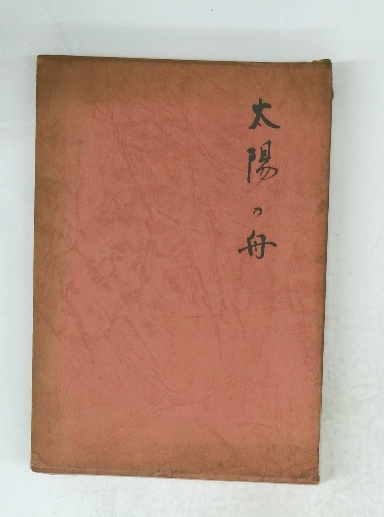 太陽の舟